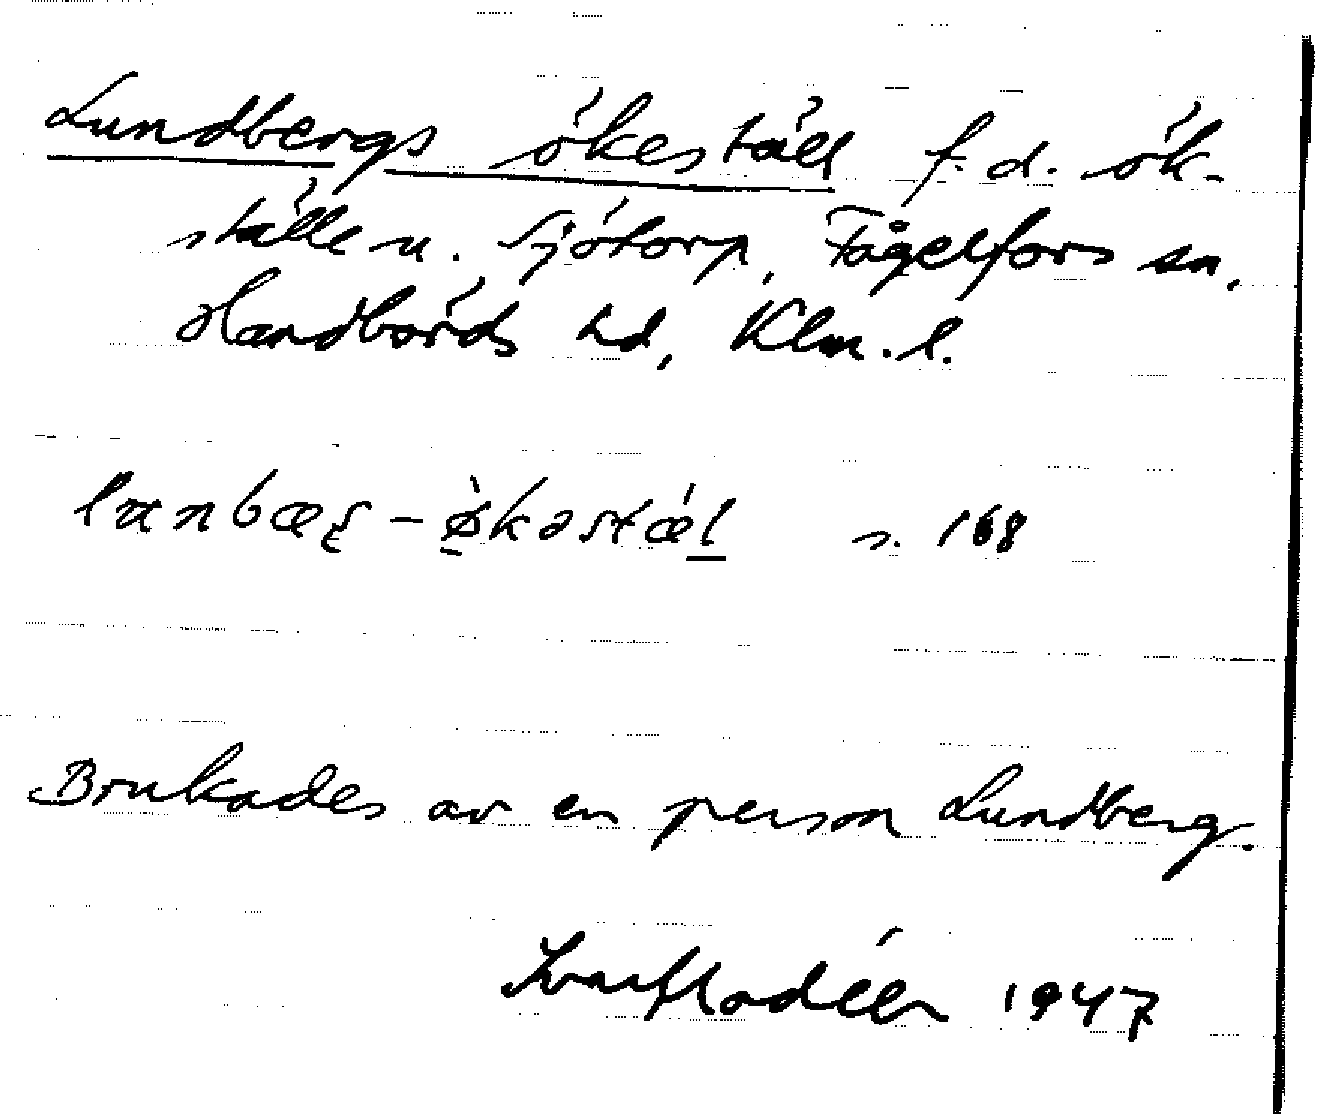 Lundbergs ökeställ f.d. ök-
ställe u. Sjötorp, Fågelfors sn,
Handbörds hd, Klm. l.
s. 168
Brukades av en person Lundberg.
1947